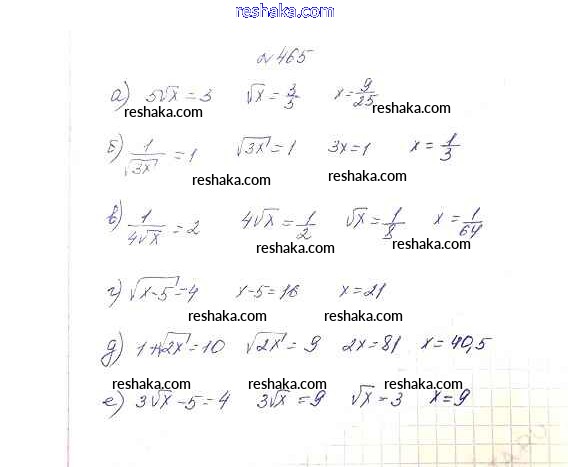 reshaka.com
№465
а) 5√x = 3   √x = 3/5   x = 9/25
reshaka.com reshaka.com
б) 1/√3x = 1   √3x = 1   3x = 1   x = 1/3
reshaka.com reshaka.com
в) 1/4√x = 2   4√x = 1/2   √x = 1/8   x = 1/64
reshaka.com reshaka.com
г) √x-5 = 4   x-5 = 16   x = 21
reshaka.com reshaka.com
д) 1+√2x = 10   √2x = 9   2x = 81   x = 40,5
reshaka.com reshaka.com reshaka.com
е) 3√x - 5 = 4   3√x = 9   √x = 3   x = 9